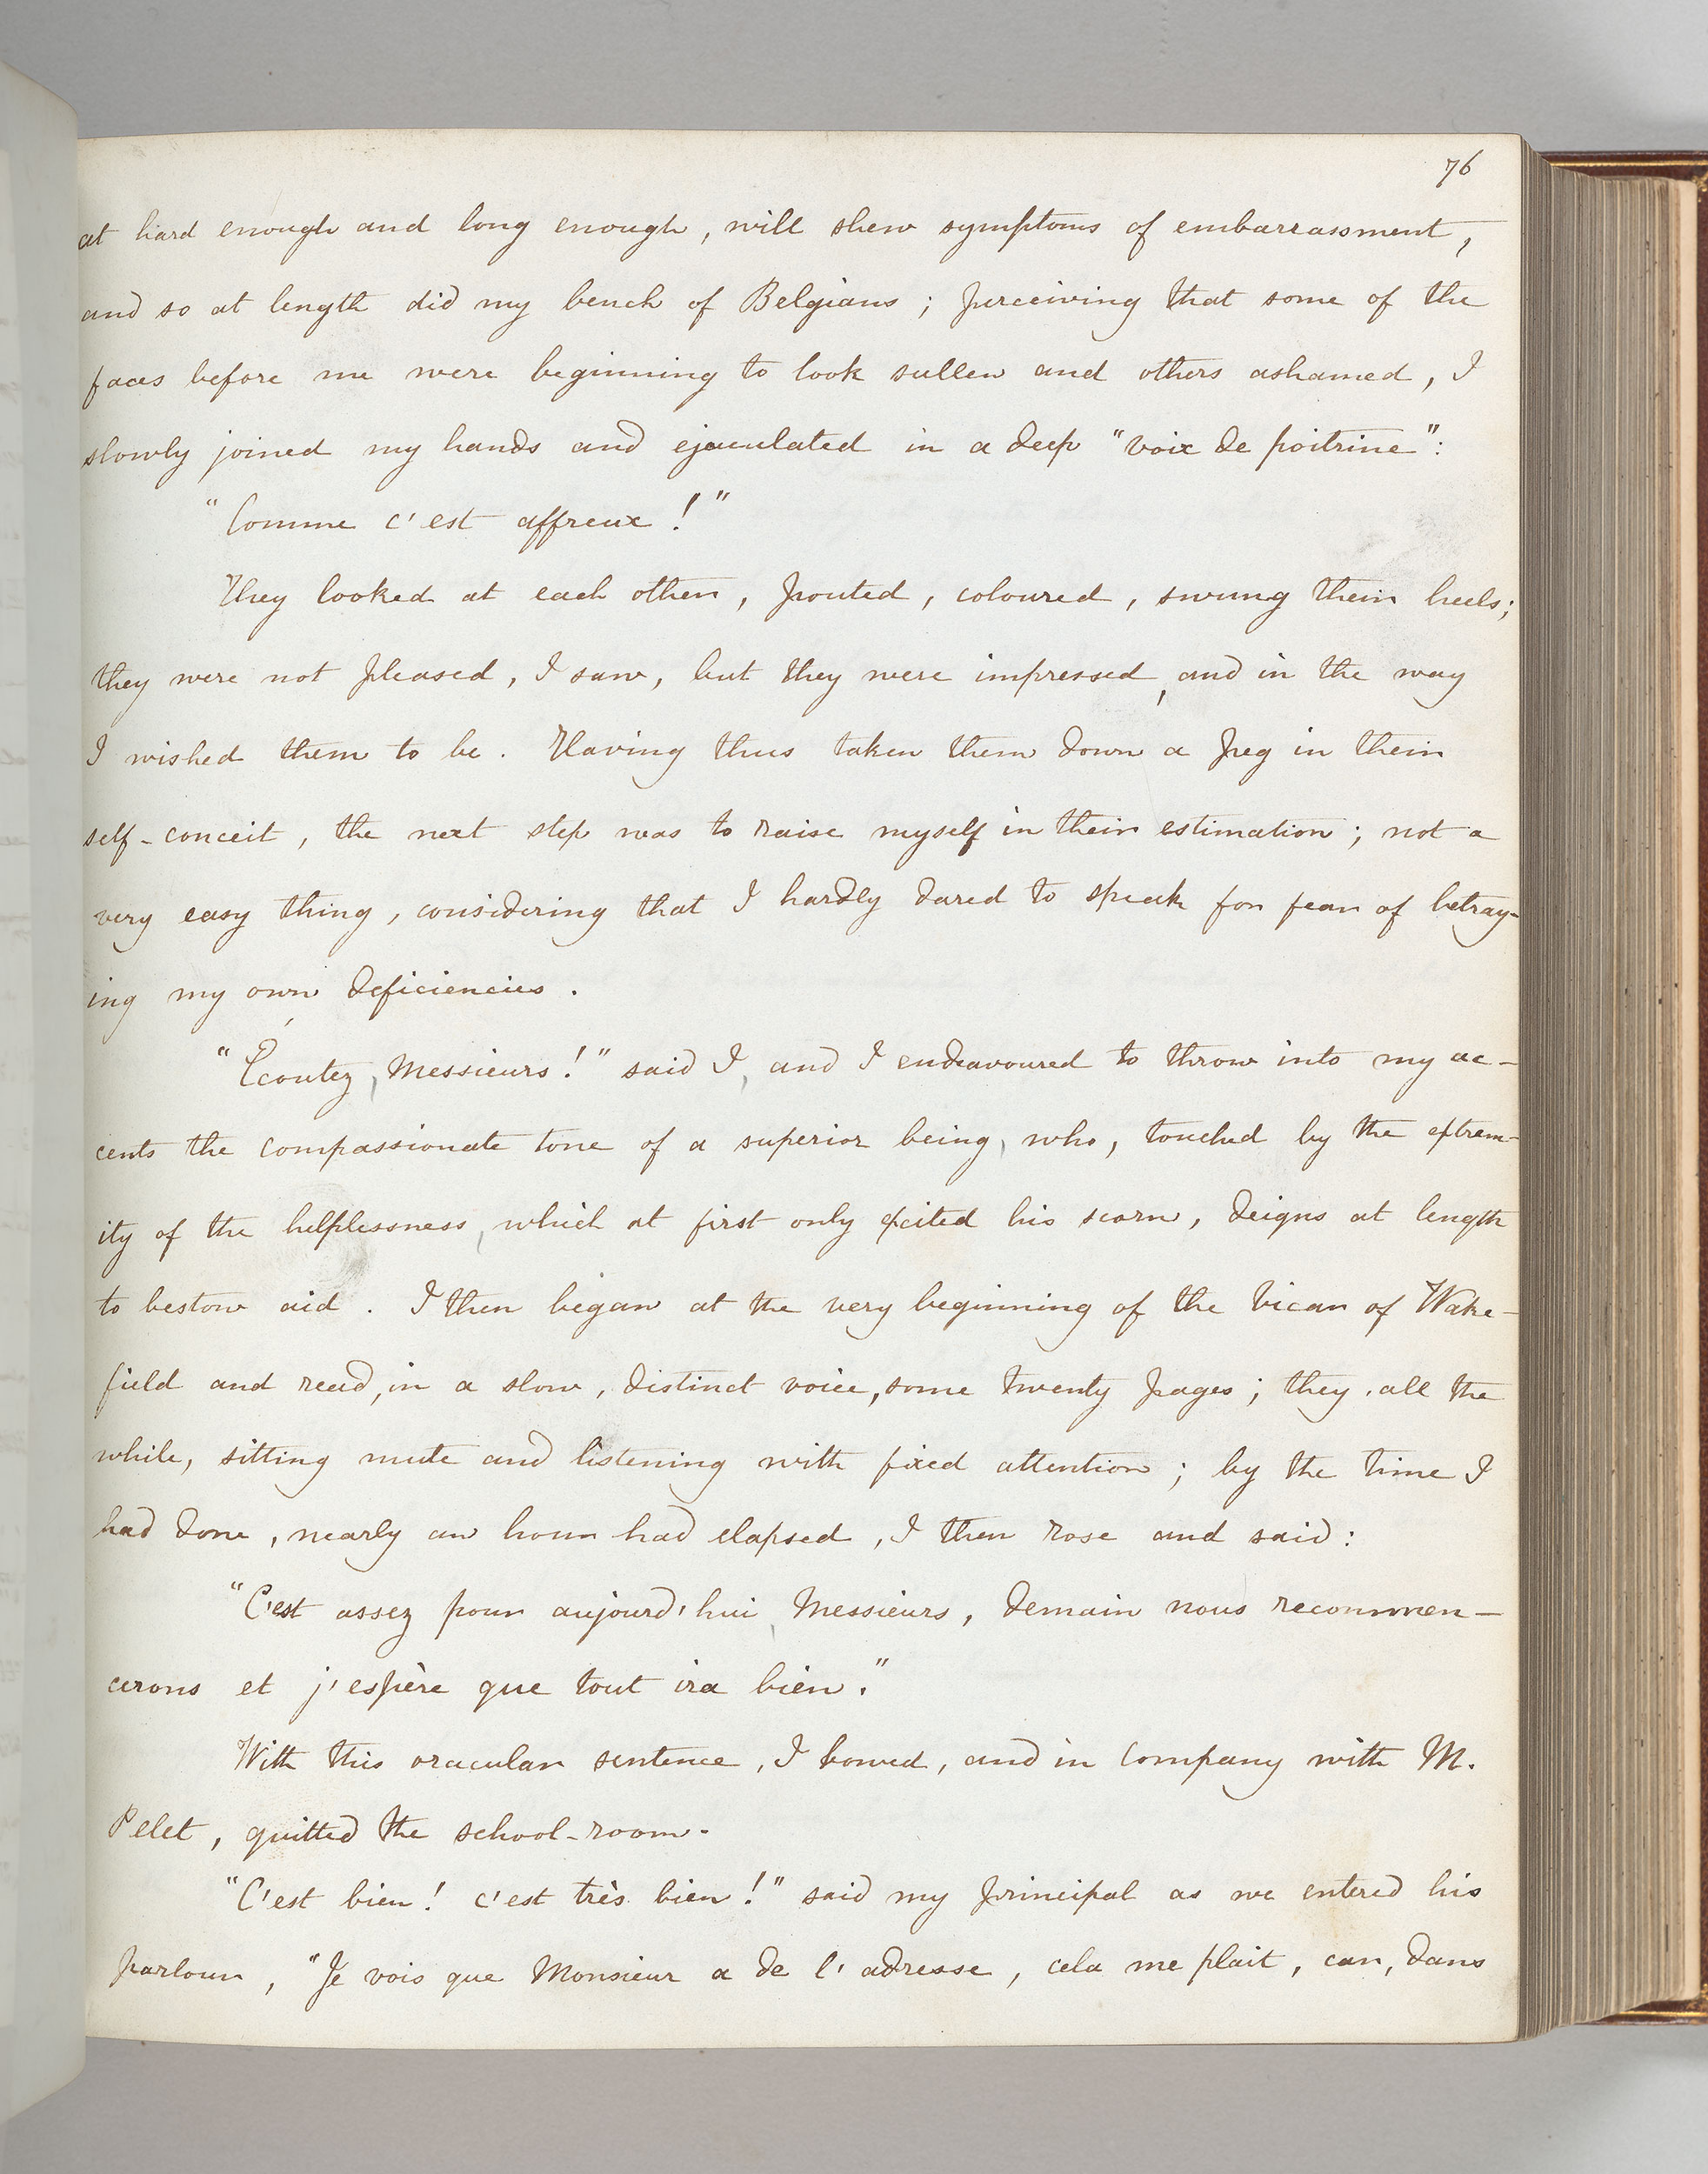 76
at hard enough and long enough, will shew symptoms of embarrassment,
and so at length did my bench of Belgians; perceiving that some of the
faces before me were beginning to look sullen and others ashamed, I
slowly joined my hands and ejaculated in a deep "voix de poitrine":
"Comme c'est affreux!"
They looked at each other, pouted, coloured, swung their heels;
they were not pleased, I saw, but they were impressed, and in the way
I wished them to be. Having thus taken them down a peg in their
self-conceit, the next step was to raise myself in their estimation; not a
very easy thing, considering that I hardly dared to speak for fear of betray-
ing my own deficiencies.
"Écoutez, Messieurs!" said I, and I endeavoured to throw into my ac-
cents the compassionate tone of a superior being, who, touched by the extrem-
ity of the helplessness, which at first only excited his scorn, deigns at length
to bestow aid. I then began at the very beginning of the Vicar of Wake-
field and read, in a slow, distinct voice, some twenty pages; they, all the
while, sitting mute and listening with fixed attention; by the time I
had done, nearly an hour had elapsed, I then rose and said:
"C'est assez pour aujourd'hui, Messieurs, demain nous recommen-
cerons et j'espère que tout ira bien."
With this oracular sentence, I bowed, and in company with M.
Pelet, quitted the school-room.
"C'est bien! c'est très bien!" said my Principal as we entered his
parlour, "Je vois que Monsieur a de l'adresse, cela me plait, car, dans